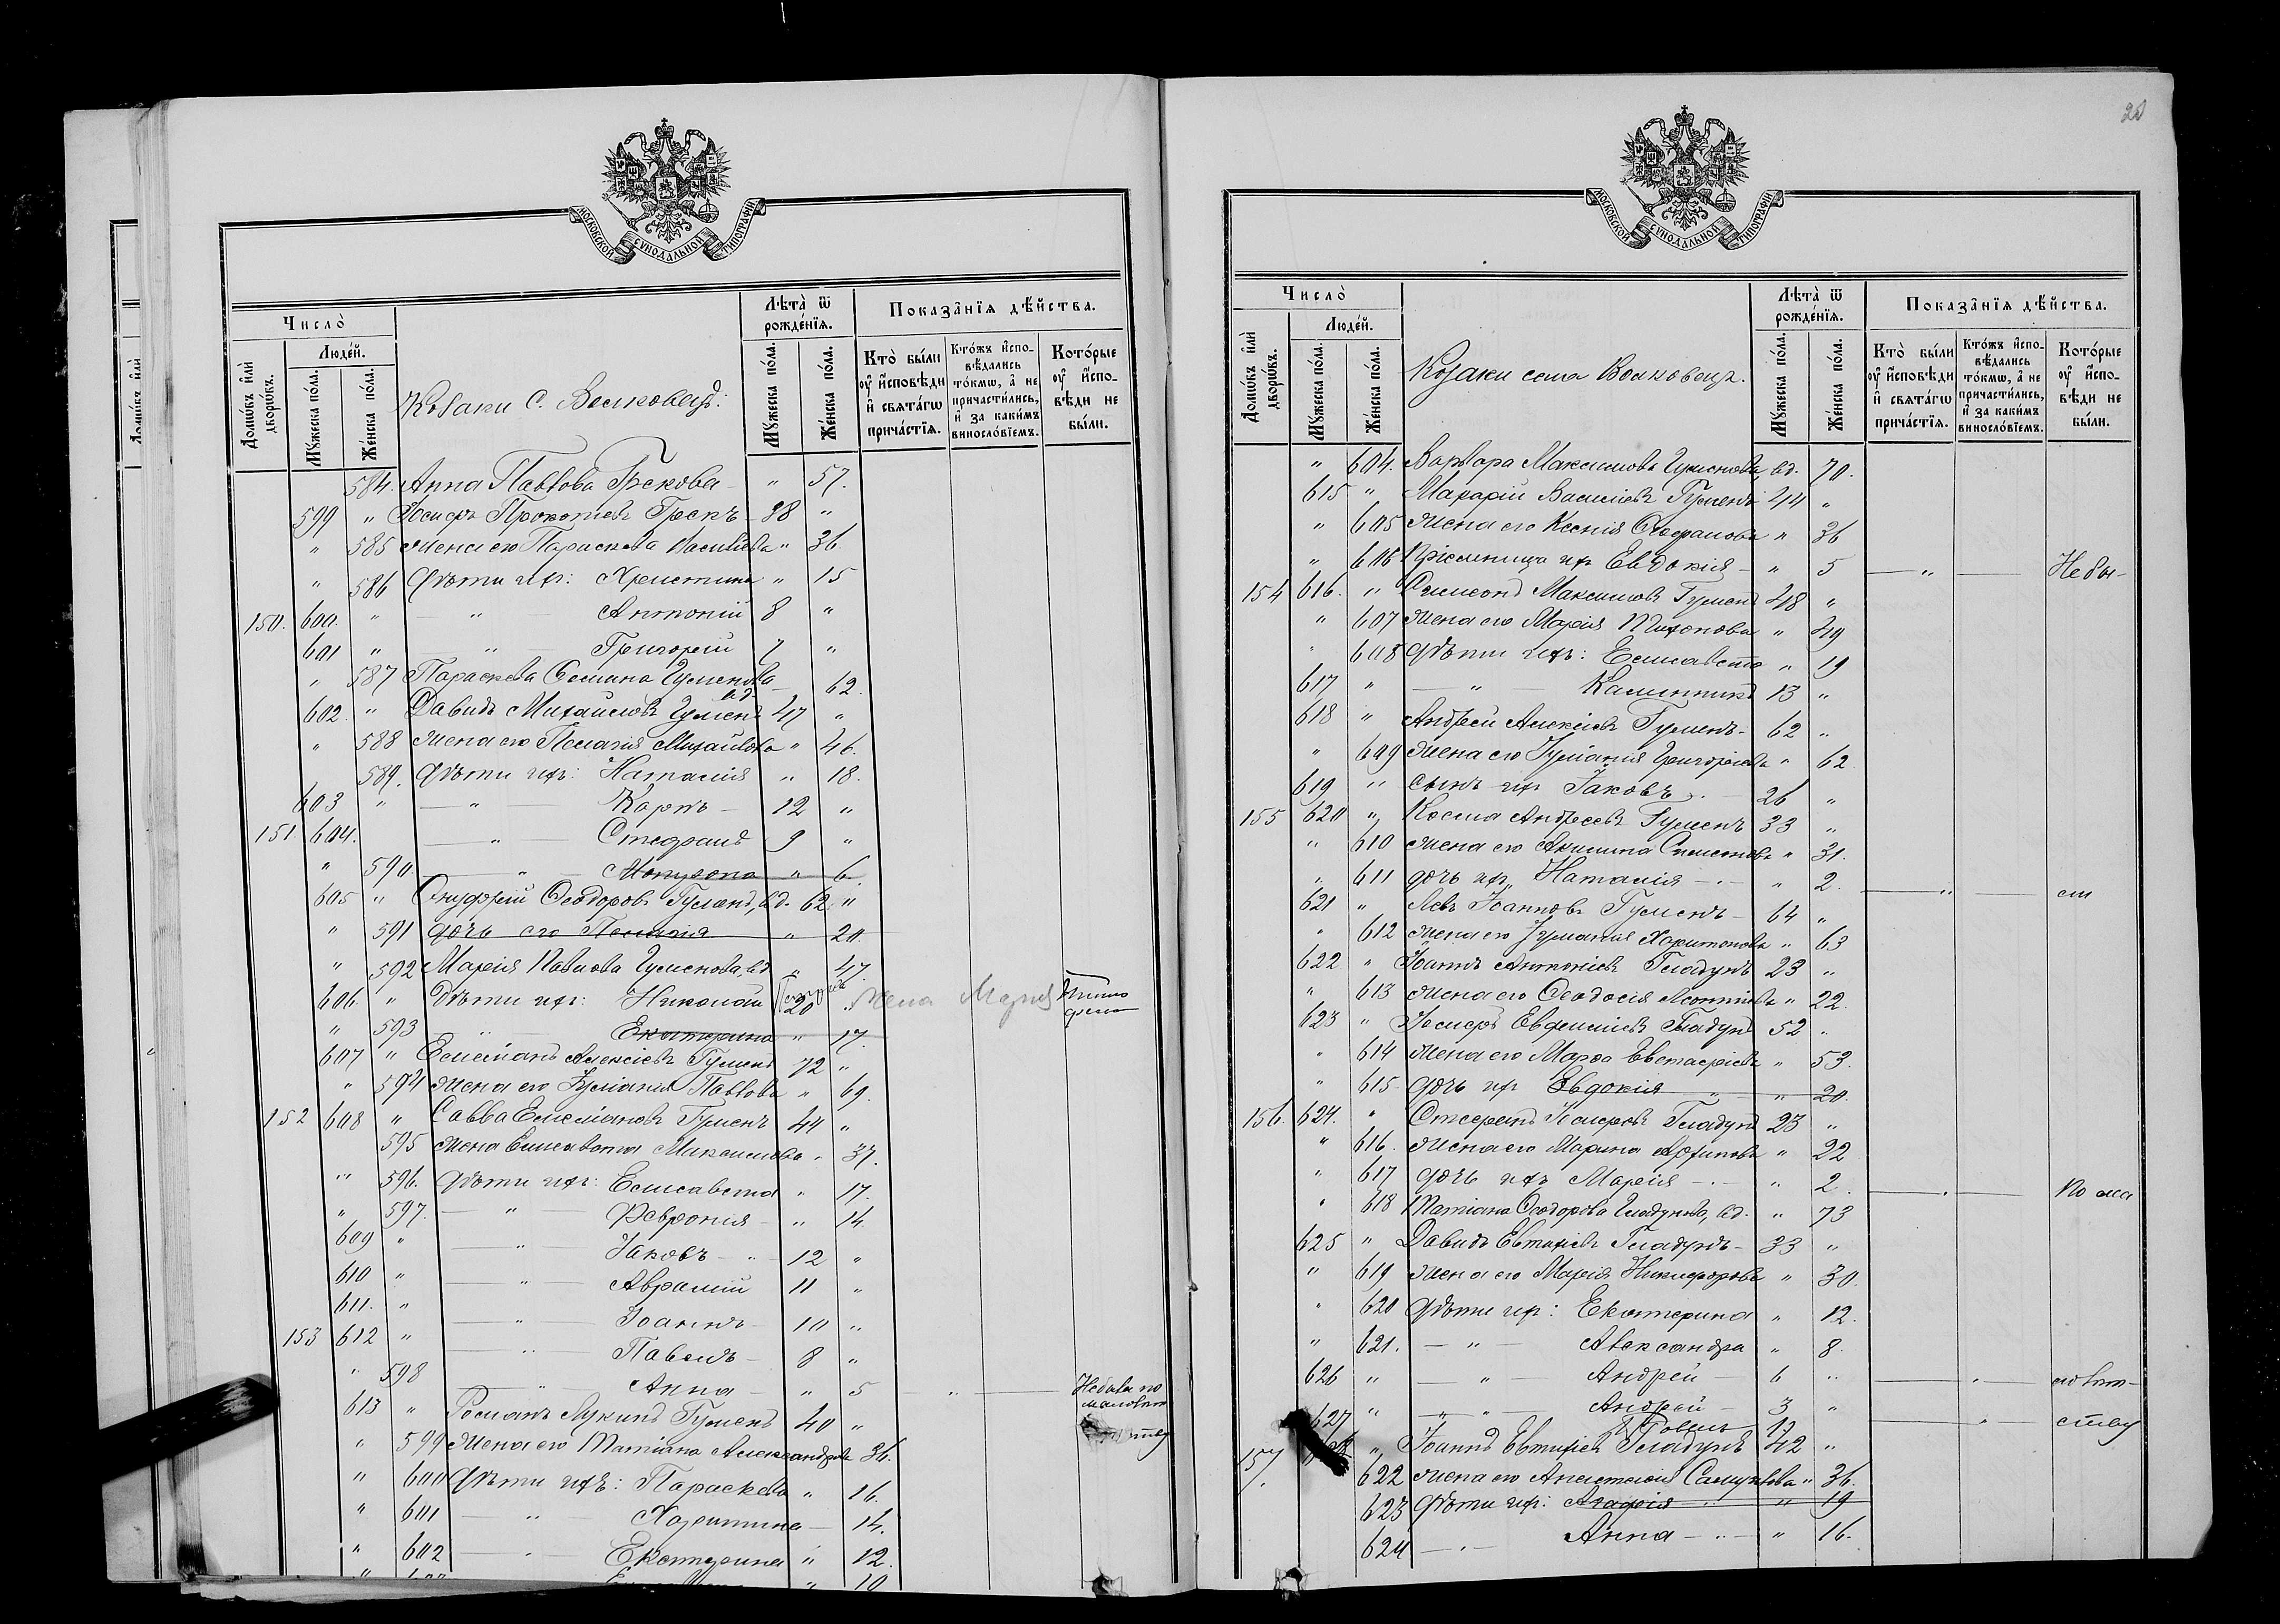 МОСКОВСКОЙ СѴНОДАЛЬНОЙ ТИПОГРАФІИ
Число̀
Людéй.
Домѡ́въ и҆лѝ дворѡ́въ.
Мꙋ́жеска по́ла.
Же́нска по́ла.
Козаки с. Волковецъ:
Лѣта̀ ѿ рожде́нїѧ.
Мꙋ́жеска по́ла.
Же́нска по́ла.
Показа̑нїѧ дѣ́йства.
Кто̀ бы́ли ᲂу҆ и҆́сповѣди и҆ свѧта́гѡ прича́стїѧ.
Кто́жъ и҆спо-вѣ́дались то́кмѡ, а҆ не причасти́лись, и҆ за каки́мъ виносло́вїемъ.
Кото́рые ᲂу҆ и҆́спо-вѣди не бы́ли.
584. Анна Павлова Грекова " 57.
599 " Іосифъ Прокопіевъ Грекъ 38 "
" 585 Жена его Параскева Василіева " 36
" 586 Дѣти ихъ: Христина " 15
150. 600. " — " — Антоній 8 "
601 " — " — Григорій 7 "
" 587 Параскева Семина Гуменова вд. 62.
602. " Давидъ Михайловъ Гуменъ 47 "
" 588 Жена его Пелагія Михайлова " 46.
589. Дѣти ихъ: Наталія " 18.
603 " — " — Карпъ 12 "
151. 604. — " — Стефанъ 9 "
" 590. — " — 6.
605 " Онуфрій Ѳеодоровъ Гуменъ, вд. 62 "
" 591 дочь его Пелагія " 20.
" 592 Марія Павлова Гуменова, вд. " 47.
606. " Дѣти ихъ: Николай 20 " Жена Марія
" 593 — " — Екатерина " 17.
607 " Емеліанъ Алексіевъ Гуменъ 72 "
" 594 Жена его Іуліанія Павлова " 69.
152 608 " Савва Емеліановъ Гуменъ 44 "
595 Жена Елисавета Максимова " 37.
" 596. Дѣти ихъ: Елисавета " 17.
" 597. — " — Февронія " 14
609 " — " — Іаковъ 12 "
610 " — " — Аврамій 11 "
611. " — " — Іоаннъ 10 "
153 612 " — " — Павелъ 8 "
" 598 — " — Анна " 5 " Небыла по маловѣт
613 " Романъ Лукинъ Гуменъ 40 "
" 599 Жена его Татіана Александрова 36.
" 600 Дѣти ихъ: Параскева " 16.
" 601 — " — Харитина 14.
" 602 — " — Екатерина " 12.
" 10
20
МОСКОВСКОЙ СѴНОДАЛЬНОЙ ТИПОГРАФІИ
Число̀
Людéй.
Домѡ́въ и҆лѝ дворѡ́въ.
Мꙋ́жеска по́ла.
Же́нска по́ла.
Козаки села Волковецъ.
Лѣта̀ ѿ рожде́нїѧ.
Мꙋ́жеска по́ла.
Же́нска по́ла.
Показа̑нїѧ дѣ́йства.
Кто̀ бы́ли ᲂу҆ и҆́сповѣди и҆ свѧта́гѡ прича́стїѧ.
Кто́жъ и҆спо-вѣ́дались то́кмѡ, а҆ не причасти́лись, и҆ за каки́мъ виносло́вїемъ.
Кото́рые ᲂу҆ и҆́спо-вѣди не бы́ли.
" 604. Варвара Максимова Гуменова, вд. 70.
615 " Макарій Василіевъ Гуменъ 44 "
" 605 Жена его Ксенія Стефанова " 36
" 606 Пріемница ихъ Евдокія " 5 — " — Небы-
154 616. " Симеонъ Максимовъ Гуменъ 48 "
" 607 Жена его Марія Тихонова " 49
" 608 Дѣти ихъ: Елисавета " 19
617 " — " — Каллиникъ 13 "
618 " Андрей Алексіевъ Гуменъ 62 "
" 609 Жена его Іуліанія Григоріева " 62
619 " сынъ ихъ Іаковъ 26 "
155 620 " Косма Андреевъ Гуменъ 33 "
" 610 Жена его Акилина Симеонова " 31.
" 611 дочь ихъ Наталія " 2. — " — ли
621 " Левъ Іоанновъ Гуменъ 64 "
" 612 Жена его Іуліанія Харитонова " 63
622 " Іоаннъ Антоніевъ Гладунъ 23 "
" 613 Жена его Ѳеодосія Леонтіева " 22.
623 " Іосифъ Евфиміевъ Гладунъ 52 "
" 614 Жена его Марѳа Евстафіева " 53.
" 615. дочь ихъ Евдокія " 20.
156. 624. " Стефанъ Іосифовъ Гладунъ 23 "
" 616. Жена его Марина Архипова " 22
" 617 дочь ихъ Марія " 2. — " — по ма
" 618 Татіана Ѳеодорова Гладунова, вд. " 73
625 " Давидъ Евтихіевъ Гладунъ 33 "
" 619 Жена его Марія Никифорова " 30.
" 620 Дѣти ихъ: Екатерина " 12.
" 621. — " — Александра " 8.
626 " — " — Андрей 6 " — " — ловѣт-
627 " — " — Андрей 3 " — " — ству
157. " Іоаннъ Евтихіевъ Гладунъ 42 "
622 Жена его Анастасія Самуилова " 36.
623 Дѣти ихъ: Агафія " 19
624 — " — Анна " 16.